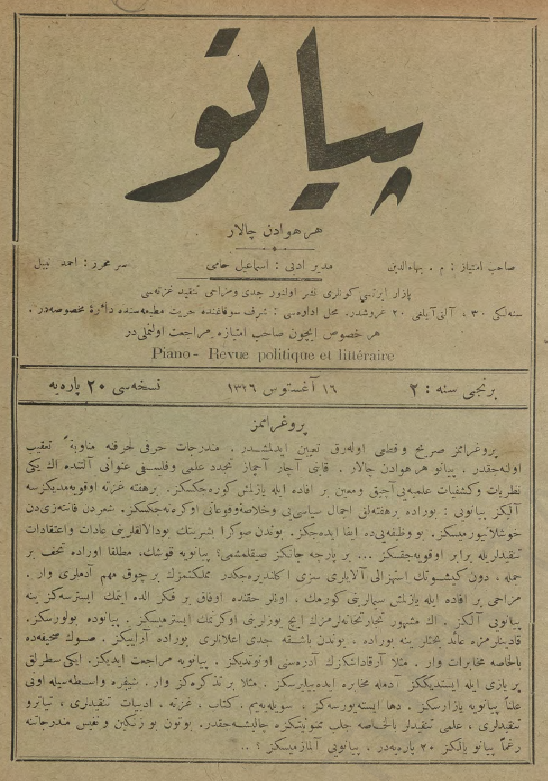 پیانو
هر هوادن چالار
صاحب امتیاز : م . بهاءالدین مدیر ادبی : اسماعیل حامی سر محرر : احمد نبیل
بازار ایرتسی كونلری نشر اولنور جدی ومزاحی تنقید غزته‌سی
سنه‌لكی ٣٠ ، آلتی آیلغی ٢٠ غروشدر. محل اداره‌سی : شرف سوقاغنده حریت مطبعه‌سنده دائرهٔ مخصوصه‌در .
هر خصوص ایچون صاحب امتیازه مراجعت اولنملی‌در
Piano - Revue politique et littéraire
برنجی سنه : ٢ ١٦ آغستوس ١٣٢٦ نسخه‌سی ٢٠ پاره‌یه
پروغرامز
پروغرامز صریح وقطعی اوله‌رق تعیین ایدلمشدر . مندرجات حرفی حرفنه مناوبةً تعقیب
اوله‌جقدر . پیانو هر هوادن چالار . قاپنی آچار آچماز تجدد علمی وفلسفی عنوانی آلتنده اك یكی
نظریات وكشفیات علمیه‌یی آچیق ومعین بر افاده ایله یازلمش كوره‌جكسكز. بر هفته غزته اوقویه‌مدیكزسه
آلیكز پیانویی : بوراده هفته‌لق اجمال سیاسی‌یی وخلاصهٔ وقوعاتی اوكرنه‌جكسكز. شعردن
خوشلانیورمیسكز. بو وظیفه‌یی‌ده ایفا ایده‌جكز. بوندن صوكرا بشریتك عادات واعتقادات
تنقیدلریله برابر اوقویه‌جقسكز ... بر پارچه جانكز صیقلمشمی؟ پیانویه قوشك، مطلقا اوراده تحف بر
جمله ، دون كیشوتك استهزالی آلایلری سزی اكلندیره‌جكدر. مملكتمزك بر چوق مهم آدملری وار .
مزاحی بر افاده ایله یازلمش سیمالرینی كورمك ، اونلر حقنده اوفاق بر فكر الده ایتمك ایسترسه‌كز ینه
پیانویی آلكز . اك مشهور تجارتخانه‌لرمزك ایچ یوزلرینی اوكرنمك ایسترمیسكز . پیانوده بولورسكز.
قادینلرمزه عائد بحثلر ینه بوراده . بوندن باشقه جدی اعلانلری بوراده آراییكز . صوك صحیفه‌ده
بالخاصه مخابرات وار . مثلا آرقداشكزك آدره‌سنی اونوتدیكز . پیانویه مراجعت ایدیكز. ایكی سطرلق
بر یازی ایله ایستدیككز آدمله مخابره ایده‌بیلیرسكز . مثلا بر تذكره‌كز وار . شیفره واسطه‌سیله اونی
علناً پیانویه یازارسكز . دها ایسته‌یورسه‌كز . سویله‌یه‌یم . كتاب ، غزته ، ادبیات تنقیدلری ، تیاترو
تنقیدلری ، علمی تنقیدلر بالخاصه جلب ممنونیتكزه چالیشه‌جقدر. بوتون بو زنكین ونفیس مندرجاتنه
رغماً پیانو یالكز ٢٠ پاره‌یه‌در ، پیانویی آلمازمیسكز ؟ ..